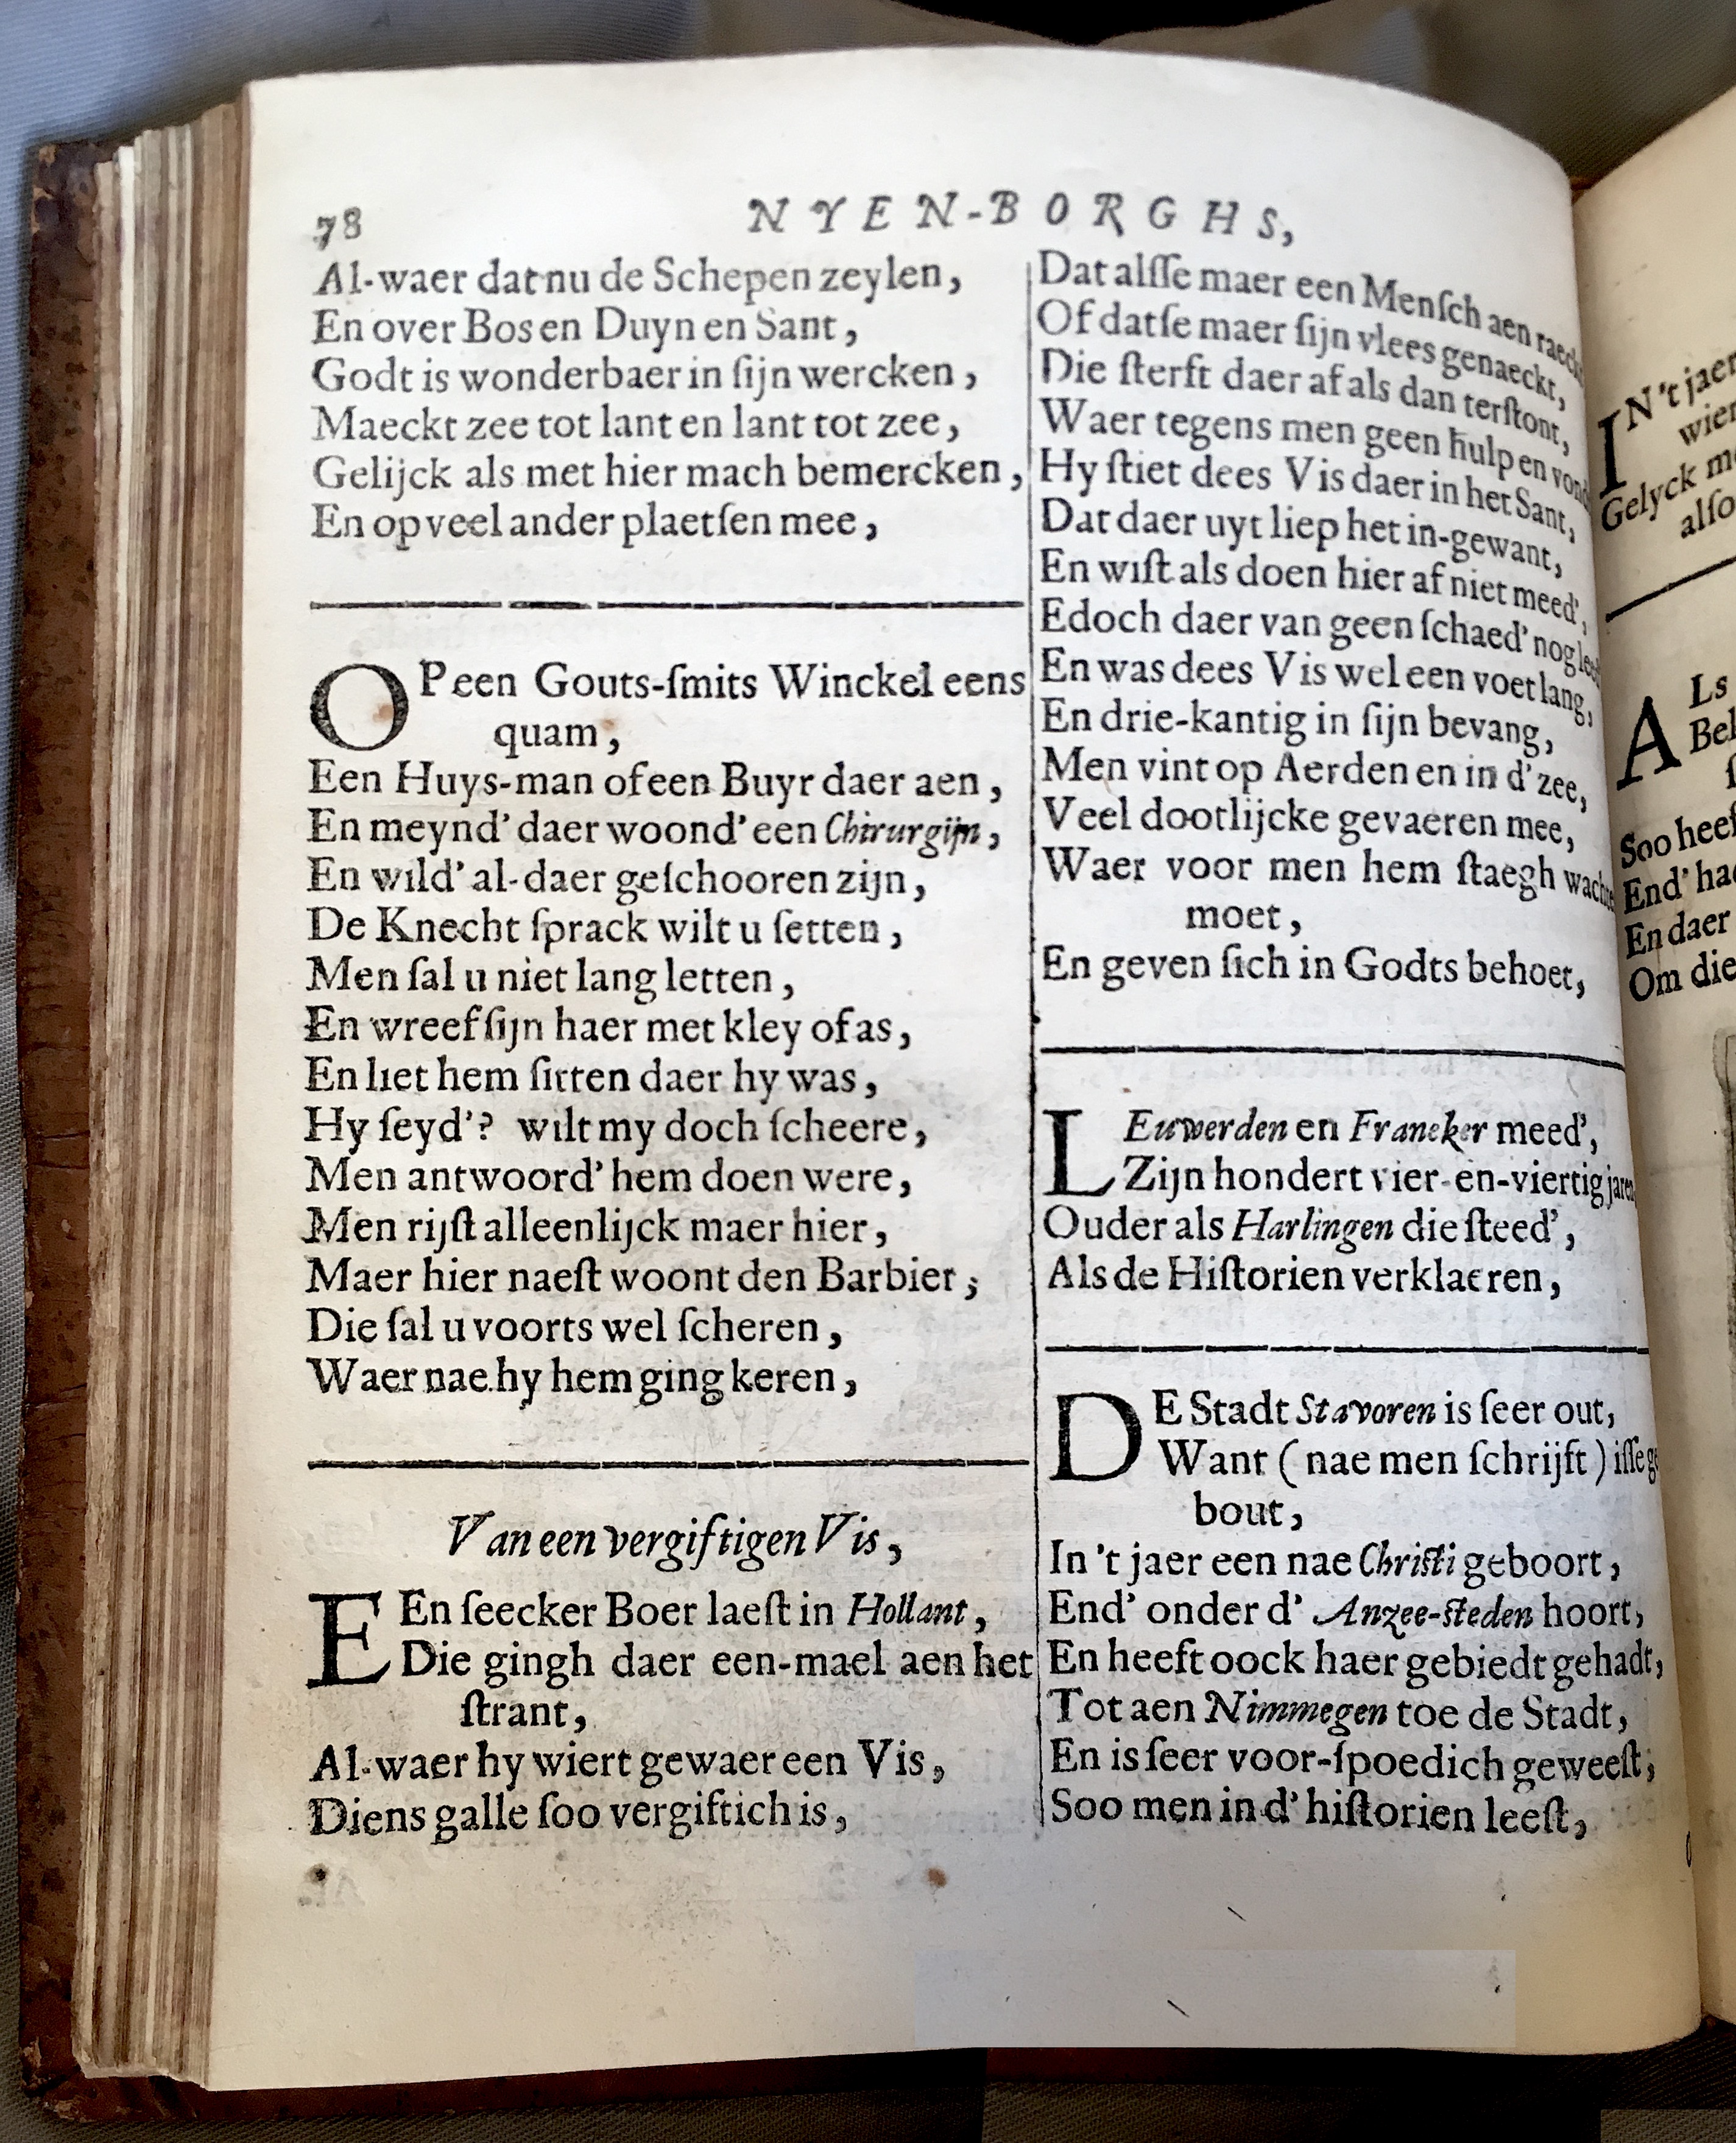 78
NYEN-BORGHS,
Al-waer dat nu de Schepen zeylen,
En over Bos en Duyn en Sant,
Godt is wonderbaer in ſijn wercken,
Maeckt zee tot lant en lant tot zee,
Gelijck als met hier mach bemercken,
En op veel ander plaetſen mee,
OP een Gouts-ſmits Winckel eens
quam,
Een Huys-man of een Buyr daer aen,
En meynd' daer woond' een Chirurgijn,
En wild' al-daer geſchooren zijn,
De Knecht ſprack wilt u ſetten,
Men ſal u niet lang letten,
En wreef ſijn haer met kley of as,
En liet hem ſitten daer hy was,
Hy ſeyd'? wilt my doch ſcheere,
Men antwoord' hem doen were,
Men rijſt alleenlijck maer hier,
Maer hier naeſt woont den Barbier;
Die ſal u voorts wel ſcheren,
Waer nae hy hem ging keren,
Van een vergiftigen Vis,
EEn ſeecker Boer laeſt in Hollant,
Die gingh daer een-mael aen het
ſtrant,
Al-waer hy wiert gewaer een Vis,
Diens galle ſoo vergiftich is,
Dat alſſe maer een Menſch aen
Of datſe maer ſijn vlees genaeckt,
Die ſterft daer af als dan terſtont,
Waer tegens men geen hulp en
Hy ſtiet dees Vis daer in het Sant,
Dat daer uyt liep het in-gewant,
En wiſt als doen hier af niet meed',
Edoch daer van geen ſchaed' nog
En was dees Vis wel een voet lang,
En drie-kantig in ſijn bevang,
Men vint op Aerden en in d' zee,
Veel dootlijcke gevaeren mee,
Waer voor men hem ſtaegh
moet,
En geven ſich in Godts behoet,
LEuwerden en Franeker meed',
Zijn hondert vier-en-viertig
Ouder als Harlingen die ſteed',
Als de Hiſtorien verklaeren,
DE Stadt Stavoren is ſeer out,
Want (nae men ſchrijft) iſſe ge
bout,
In 't jaer een nae Chriſti geboort,
End' onder d' Anzee-ſteden hoort,
En heeft oock haer gebiedt gehadt,
Tot aen Nimmegen toe de Stadt,
En is ſeer voor-ſpoedich geweeſt,
Soo men in d' hiſtorien leeſt,
IN 't jaer
Gelyck
alſo
ALs
Soo
End'
En daer
Om die